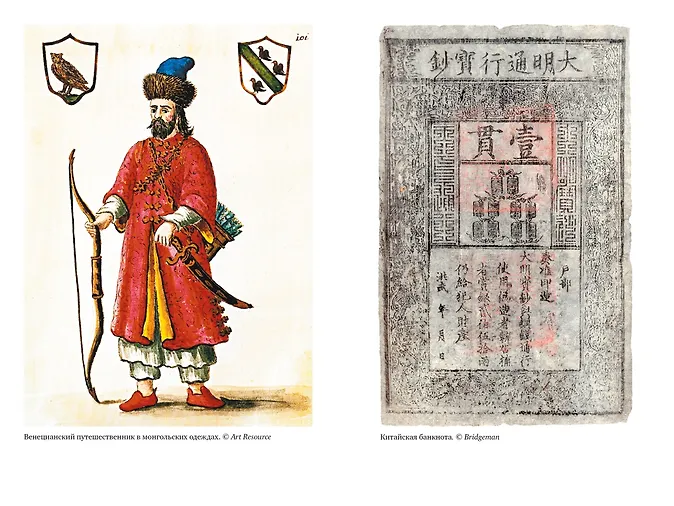 101
大明通行寶鈔
壹貫
戶部
奏准印造
大明寶鈔與銅錢通行
使用偽造者斬告捕
者賞銀貳伯伍拾兩
仍給犯人財產
洪武 年 月 日
Венецианский путешественник в монгольских одеждах. © Art Resource
Китайская банкнота. © Bridgeman